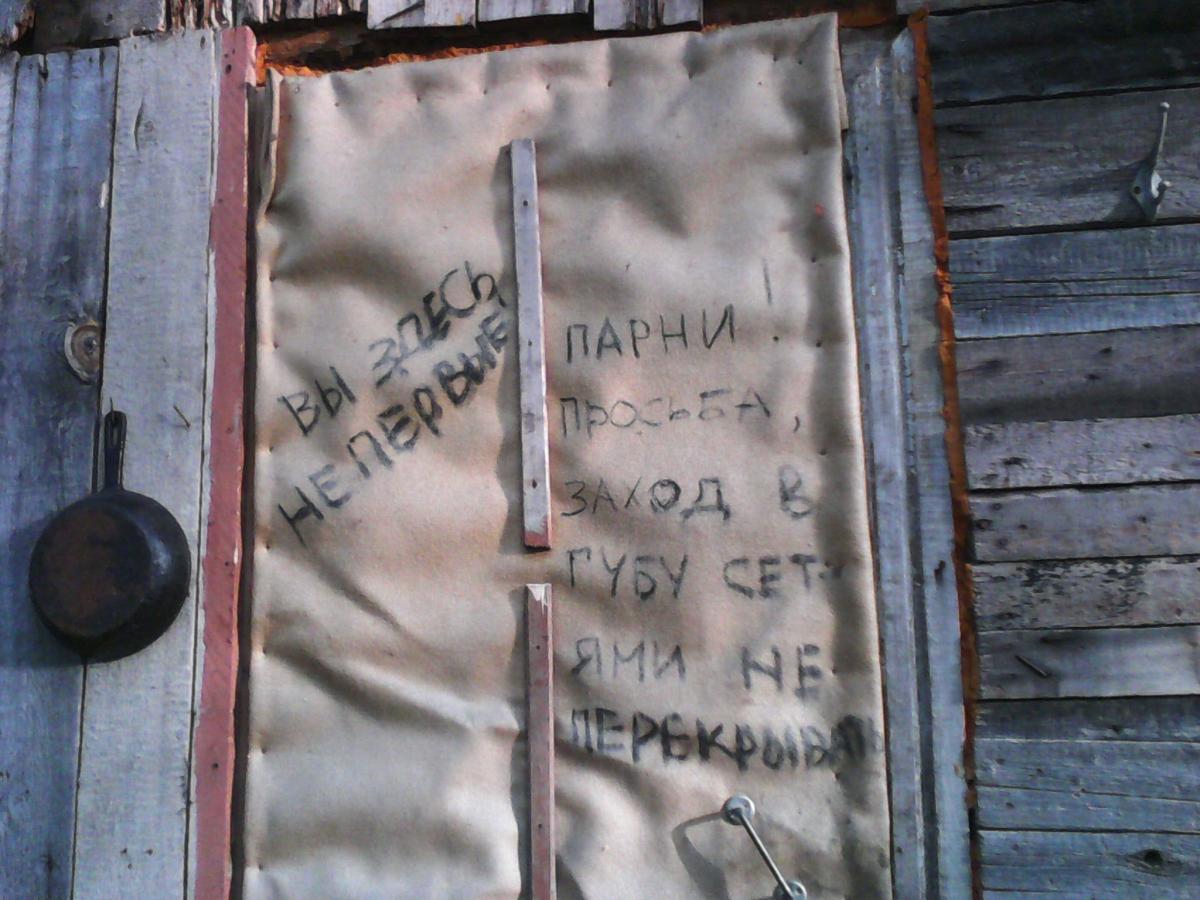 ВЫ ЗДЕСЬ
НЕ ПЕРВЫЕ
ПАРНИ !
ПРОСЬБА,
ЗАХОД В
ГУБУ СЕТ-
ЯМИ НЕ
ПЕРЕКРЫВАТЬ